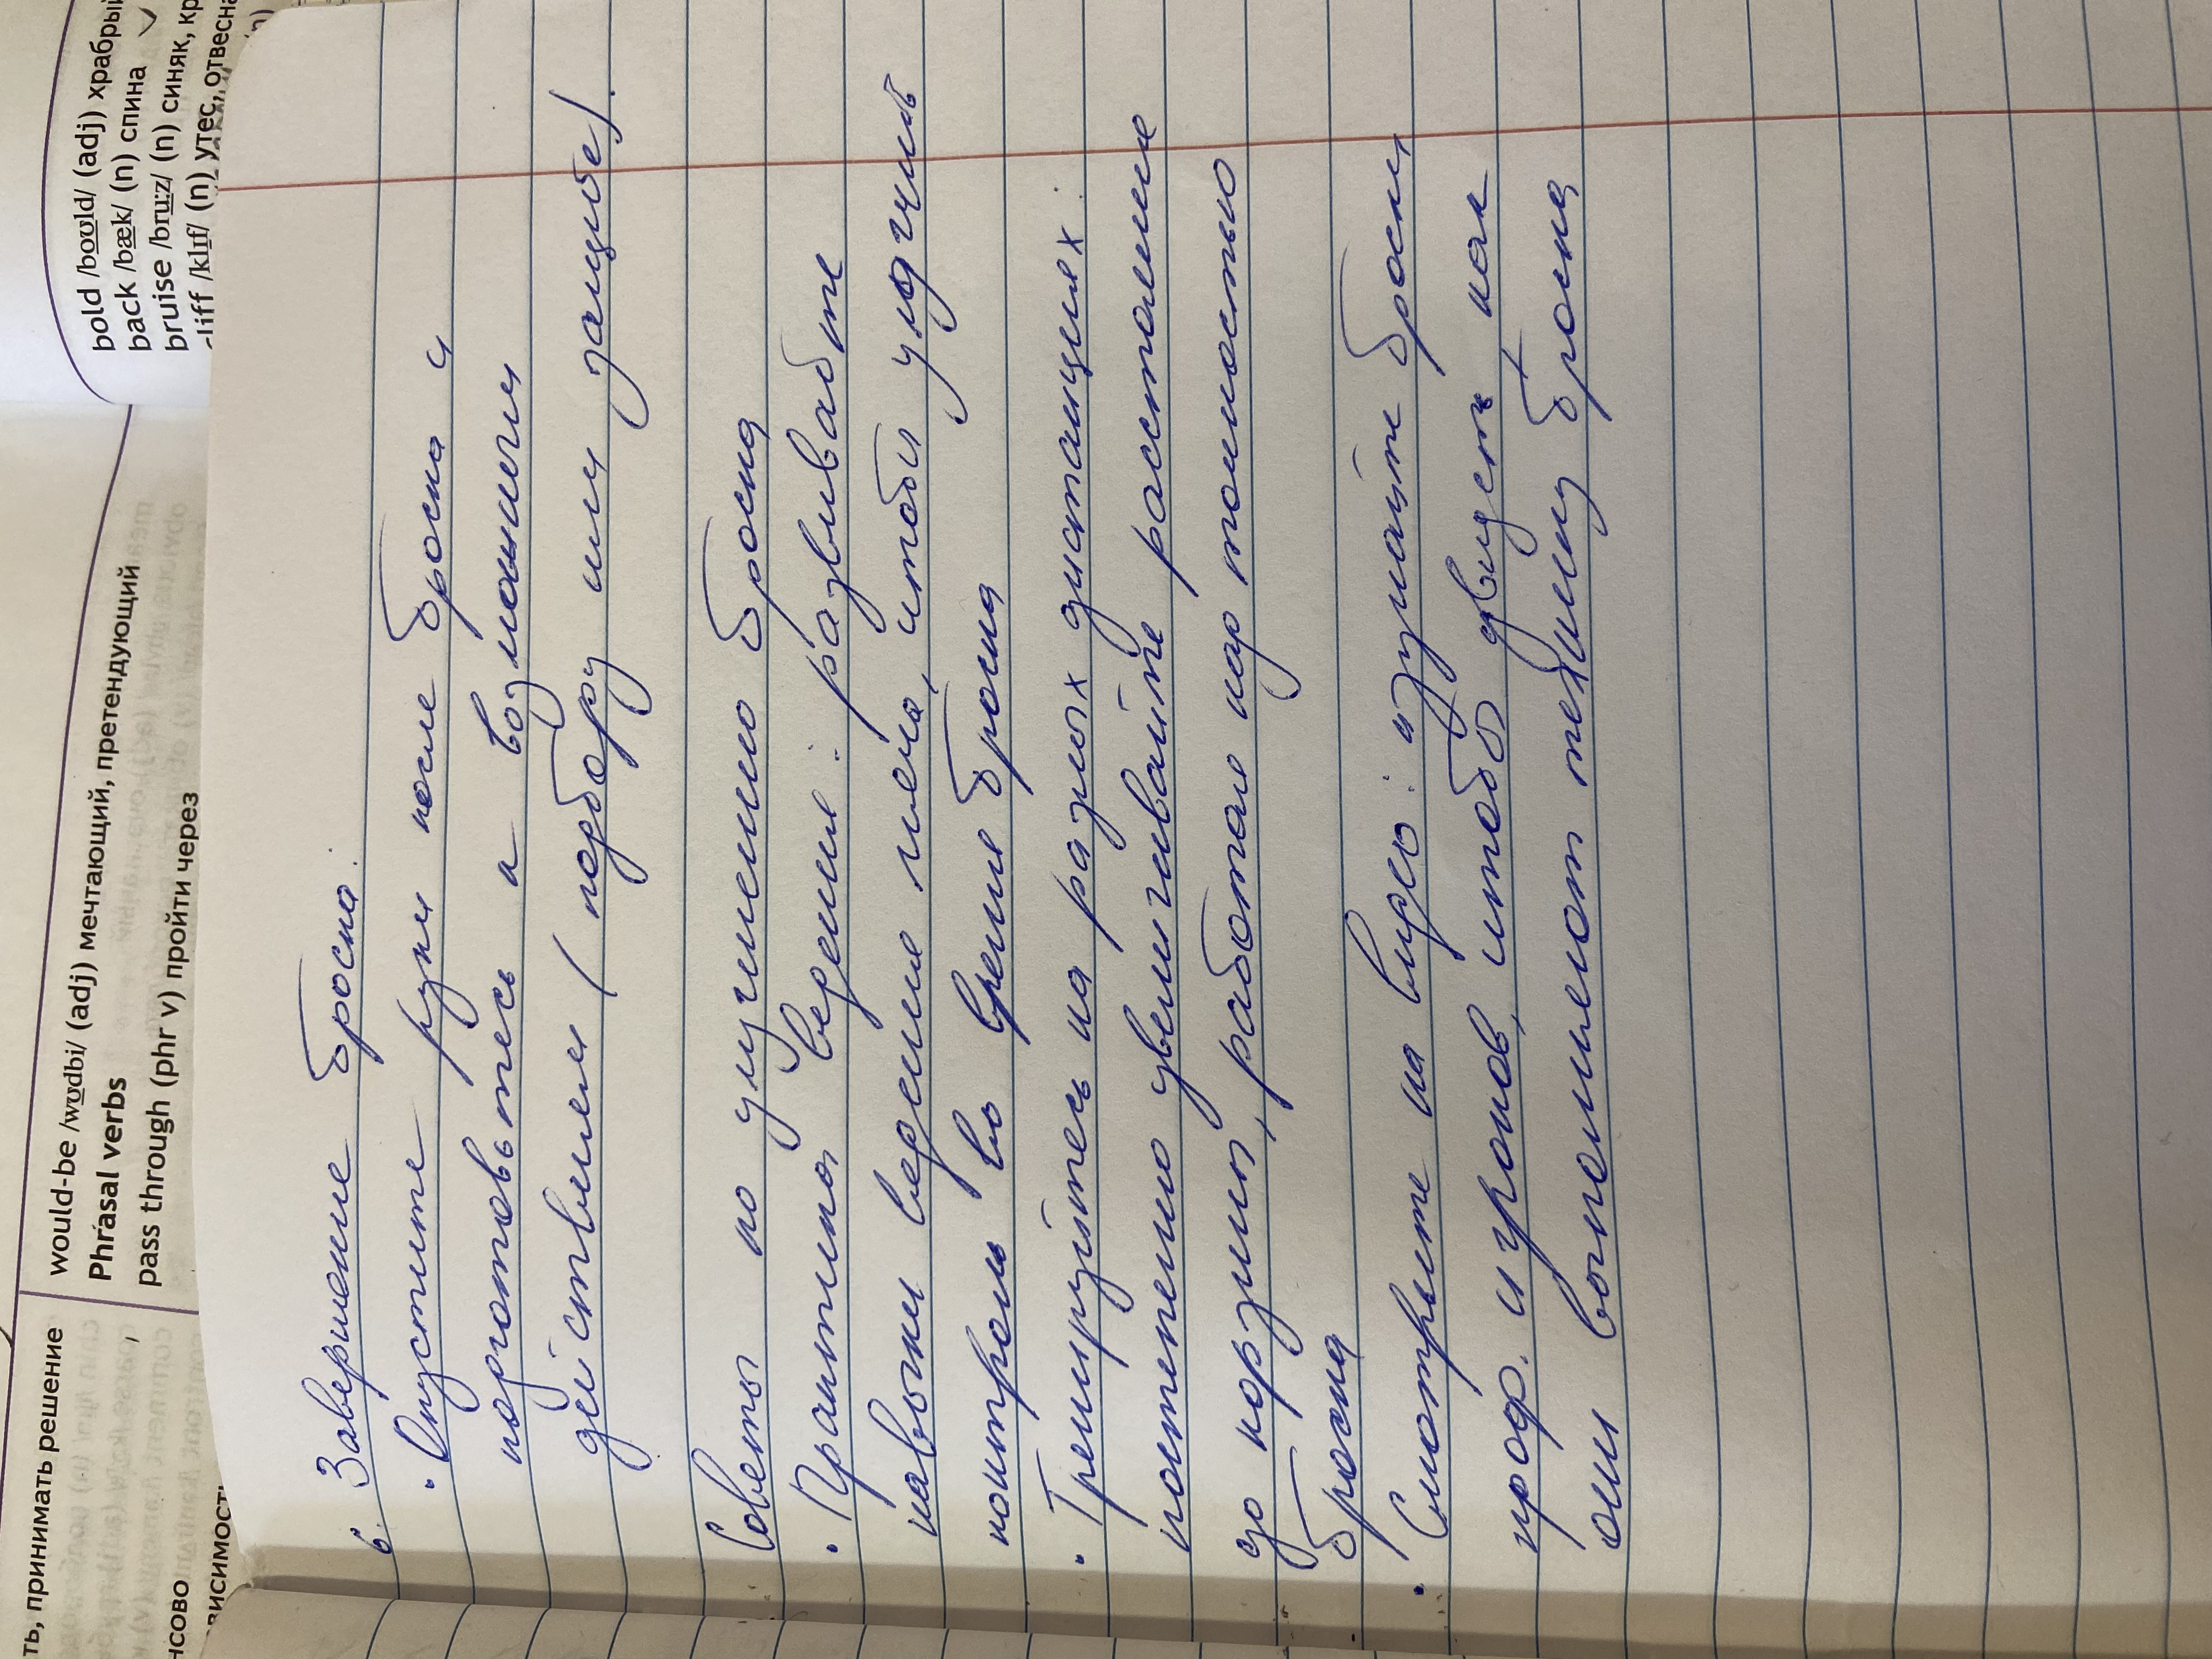 ть, принимать решение
нсово
ависимость
would-be /wʊdbi/ (adj) мечтающий, претендующий
Phrasal verbs
pass through (phr v) пройти через
bold /bəʊld/ (adj) храбрый
back /bæk/ (n) спина
bruise /bruːz/ (n) синяк, кр
cliff /klɪf/ (n) утес, отвесна
6. Завершение броска:
• Опустите руки после броска и
подготовьтесь к возможным
действиям (подбору или защите).
Советы по улучшению броска
• Практика ведения: развивайте
навыки ведения мяча, чтобы улучшить
контроль во время броска
• Тренируйтесь на разных дистанциях:
постепенно увеличивайте расстояние
до корзины, работая над точностью
броска
• Смотрите на видео: изучайте броски
проф. игроков, чтобы увидеть как
они выполняют технику броска